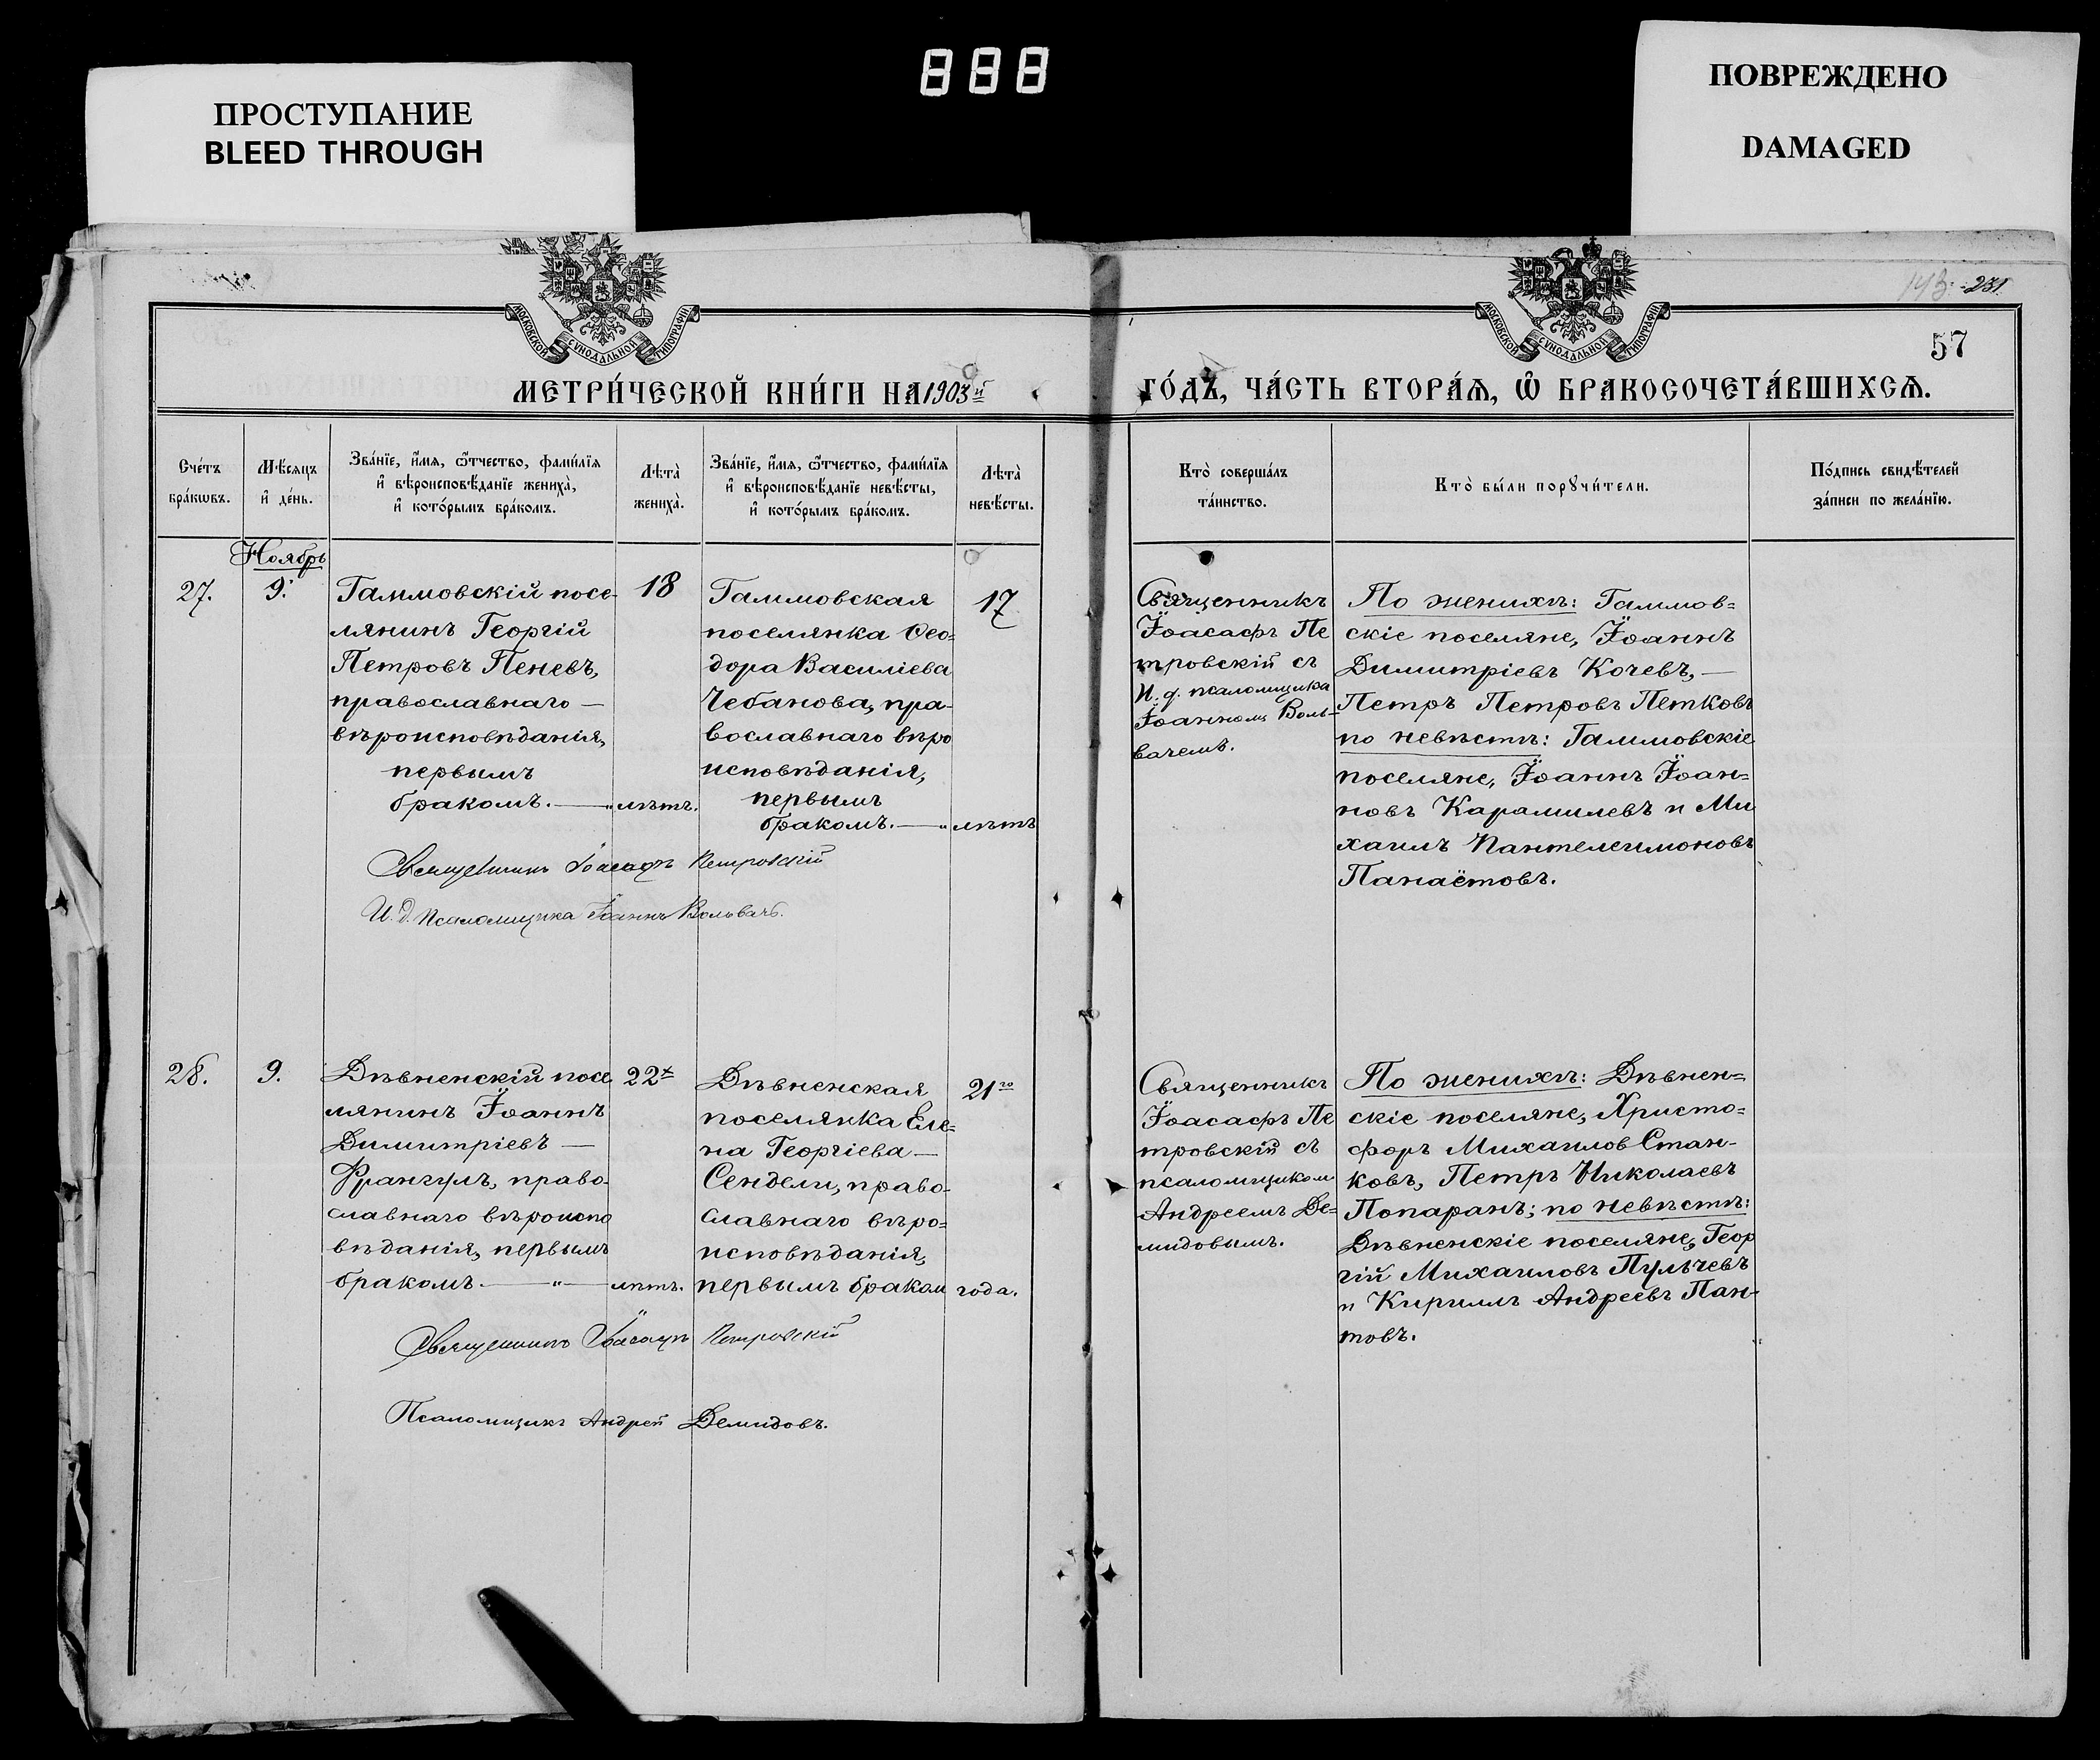 ПРОСТУПАНИЕ
BLEED THROUGH
888
ПОВРЕЖДЕНО
DAMAGED
МОСКОВСКОЙ СѴНОДАЛЬНОЙ ТИПОГРАФІИ
МОСКОВСКОЙ СѴНОДАЛЬНОЙ ТИПОГРАФІИ
143. 231.
57
МЕТРИ́ЧЕСКОЙ КНИ́ГИ НА 1903й
ГО́ДЪ, ЧА́СТЬ ВТОРА́Ѧ, Ѽ БРАКОСОЧЕТА́ВШИХСѦ.
Сче́тъ
бра́кѡвъ.
Мѣ́сяцъ
и҆ де́нь.
Зва́нїе, и҆́мѧ, ѻ҆́тчество, фами́лїѧ
и҆ вѣроисповѣ́данїе жениха̀,
и҆ кото́рымъ бра́комъ.
Лѣта̀
жениха̀.
Зва́нїе, и҆́мѧ, ѻ҆́тчество, фами́лїѧ
и҆ вѣроисповѣ́данїе невѣ́сты,
и҆ кото́рымъ бра́комъ.
Лѣта̀
невѣ́сты.
Кто̀ соверша́лъ
та́инство.
Кто̀ бы́ли порꙋчи́тели.
По́дпись свидѣ́телей
за́писи по жела́нїю.
Ноябрь
27.
9.
Гаммовскій посе-
лянинъ Георгій
Петровъ Пеневъ,
православнаго —
вѣроисповѣданія,
первымъ
бракомъ. — " лѣтъ.
18
Гаммовская
поселянка Ѳео=
дора Василіева
Чебанова, пра-
вославнаго вѣро
исповѣданія,
первымъ
бракомъ. — " лѣтъ
17
Священникъ
Іоасафъ Пе
тровскій съ
И. д. псаломщика
Іоанномъ Воль-
вачемъ.
По женихѣ: Гаммов=
скіе поселяне, Іоаннъ
Димитріевъ Кочевъ, —
Петръ Петровъ Петковъ
по невѣстѣ: Гаммовскіе
поселяне, Іоаннъ Іоан=
новъ Карамилевъ и Ми
хаилъ Пантелеимоновъ
Панаётовъ.
Священникъ Іоасафъ Петровскій
И. д. Псаломщика Іоаннъ Вольвачъ.
28.
9.
Дѣвненскій посе
лянинъ Іоаннъ
Димитріевъ —
Франгулъ, право-
славнаго вѣроиспо
вѣданія, первымъ
бракомъ. — " — лѣтъ.
22х
Дѣвненская
поселянка Еле=
на Георгіева —
Сендели, право-
славнаго вѣро=
исповѣданія,
первымъ браком года.
21го
Священникъ
Іоасафъ Пе
тровскій съ
псаломщиком
Андреемъ Де=
мидовымъ.
По женихѣ: Дѣвнен=
скіе поселяне, Христо=
форъ Михаилов Стан-
ковъ, Петръ Николаевъ
Попаранъ; по невѣстѣ:
Дѣвненскіе поселяне, Геор
гій Михаиловъ Пульчевъ
и Кириллъ Андреевъ Пан-
товъ.
Священникъ Іоасафъ Петровскій
Псаломщикъ Андрей Демидовъ.